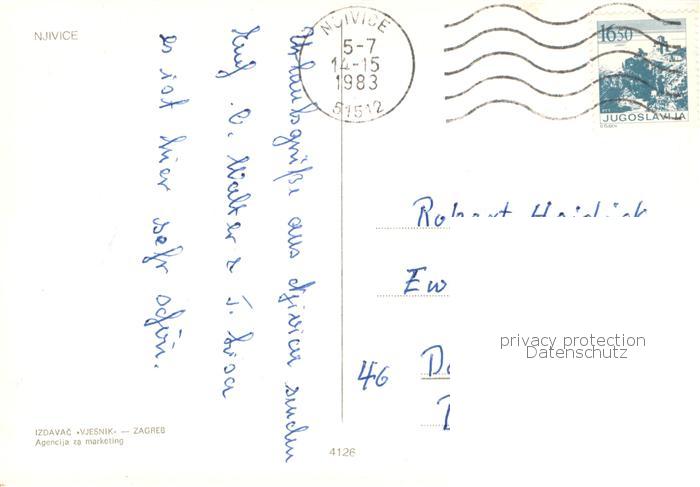 NJIVICE
NJIVICE
5-7
14-15
1983
51512
16.50
JUGOSLAVIJA
Urlaubsgrüße aus Njivice senden
Euch O. Walter & T. Lisa
es ist hier sehr schön.
Robert
Ew
46 D
privacy protection
Datenschutz
IZDAVAČ «VJESNIK» — ZAGREB
Agencija za marketing
4126